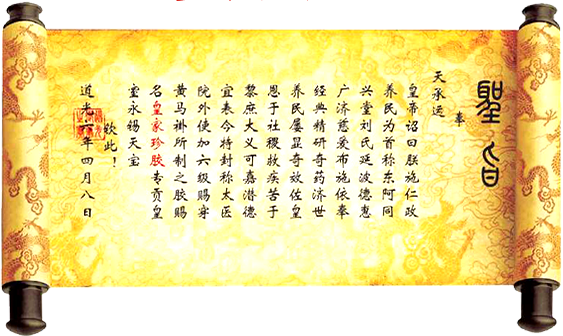 聖旨
奉
天承运
皇帝诏曰朕施仁政
养民为首称东阿同
兴堂刘氏延波德惠
广济慈爱布施依奉
经典精研奇药济世
养民屡显奇效佐皇
恩于社稷故疾苦于
黎庶大义可嘉潜德
宜表今特封称太医
院外使加六级赐穿
黄马褂所制之胶赐
名皇家珍胶专贡皇
室永锡天宝
钦此！
道光六年四月八日